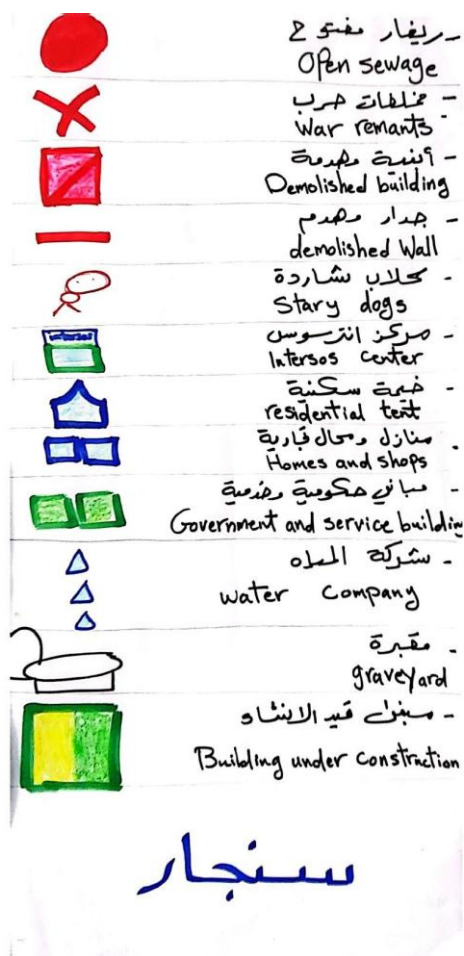 - ريغار مفتوح
Open sewage
- مخلفات حرب
War remants
- أبنية مهدمة
Demolished building
- جدار مهدم
demolished Wall
- كلاب شاردة
Stary dogs
intersos
- مركز انترسوس
Intersos Center
- خيمة سكنية
residential tent
- منازل ومحال تجارية
Homes and shops
- مباني حكومية وخدمية
Government and service building
- شركة المياه
water Company
- مقبرة
graveyard
- مبنى قيد الانشاء
Building under construction
سنجار